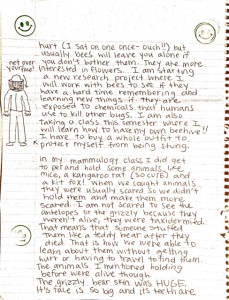 hurt (I sat on one once-ouch!!) but
usually bees will leave you alone if
you don't bother them. They are more
interested in flowers. I am starting
a new research project where I
will work with bees to see if they
have a hard time remembering and
learning new things if they are
exposed to chemicals that humans
use to kill other bugs. I am also
taking a class this semester where I
will learn how to have my own beehive!!
I have to buy a whole outfit to
protect myself from being stung.
net over
your face
in my mammulogy class I did get
to pet and hold some animals like
mice, a kangaroo rat (so cute) and
a kit fox! When we caught animals
they were usually scared so we didn't
hold them and make them more
scared. I am not scared to see the
antelopes or the grizzly because they
weren't alive, they were taxidermied.
That means that someone stuffed
them like a teddy bear after they
died. That is how we were able to
learn about them without getting
hurt or having to travel to find them
The animals I mentioned holding
before were alive though.
The grizzly bear skin was HUGE
It's tale is so big and its teeth are